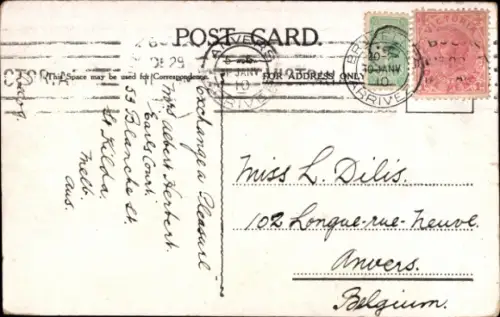 POST CARD.
This Space may be used for Correspondence.
FOR ADDRESS ONLY
ANVERS
10 JANV
10
ARRIVEE
10 JANV
10
ARRIVEE
VICTORIA
DE 29
Exchange a Pleasure
Mrs Albert Herbert.
Earls Court.
53 Blanche St.
St Kilda.
Melb.
Aus.
Miss L. Dilis.
102 Longue-rue-Neuve.
Anvers.
Belgium.